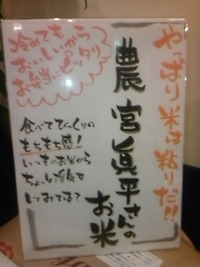 やっぱり米は粘りだ!!
農宮眞平さんの
お米
冷めても
おいしいから
お弁当にピッタリ
食べてびっくりの
もちもち感!
いつものお米から
ちょっと浮気を
してみては?